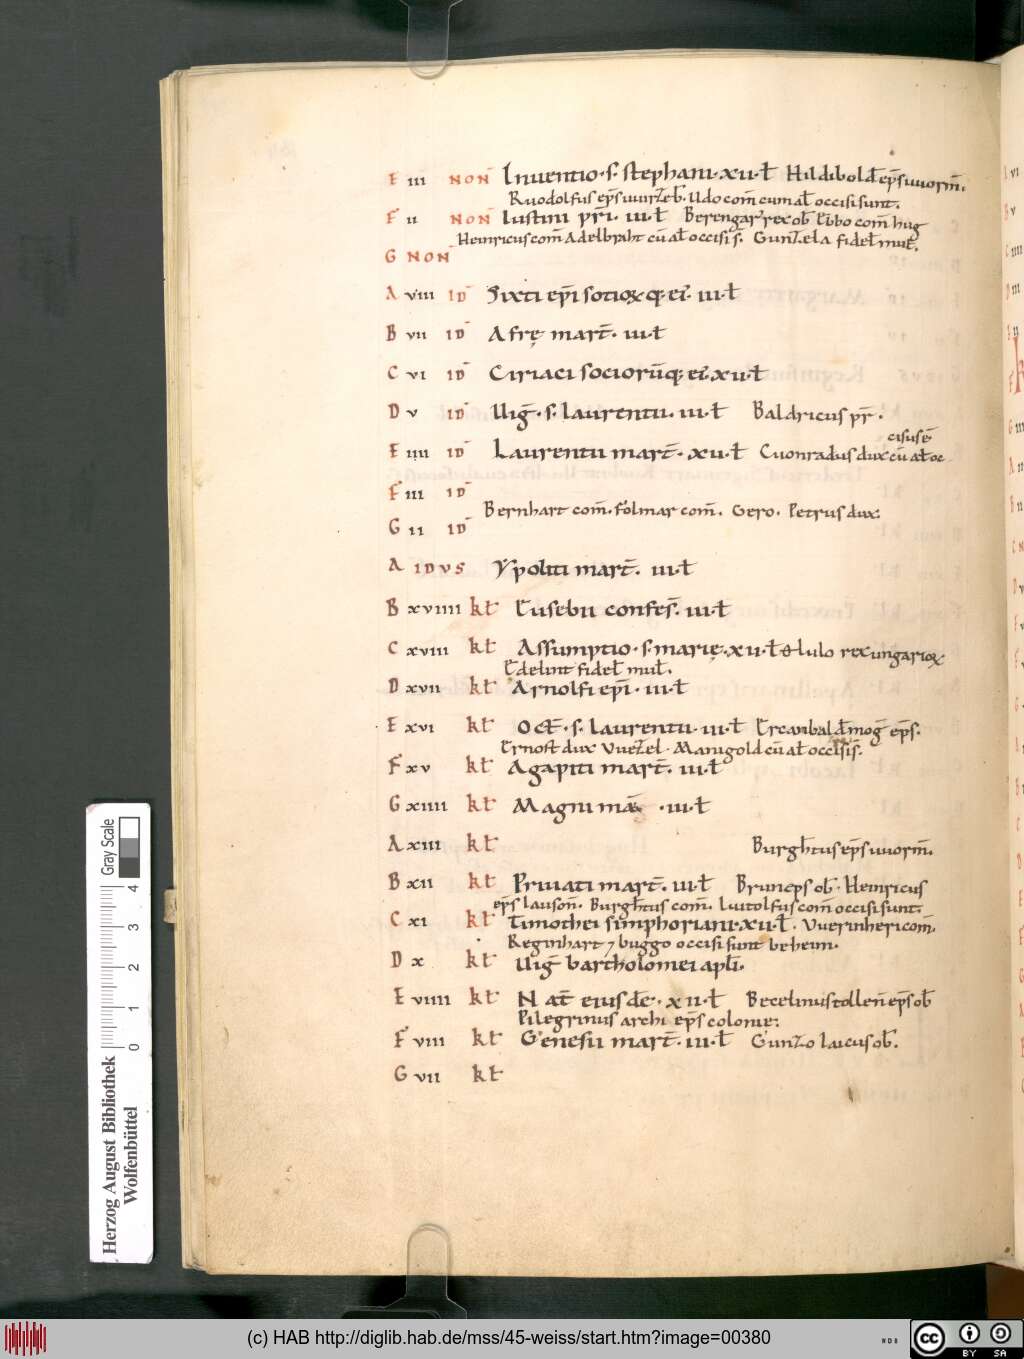 E iii NON̄ Inuentio · s̄ · stephani · xii · ł Hildibold ep̄s uuorm̄.
Ruodolfus ep̄s uuirzeb̄. Udo com̄ cum ał occisi sunt.
F ii NON̄ Iustini pr̄i. iii · ł Berengar rex ob̄ Ebbo com̄ hug
Heinricus com̄ Adelbraht cū ał occisi s̄. Gunzela fidel muł.
G NON̄
A viii ID̄ Sixti ep̄i sotioꝝ q; ei · iii · ł
B vii ID̄ Afrę mart̄. iii · ł
C vi ID̄ Ciriaci sociorū q; ei · xii · ł
D v ID̄ Uiḡ · s̄ · laurentii. iii · ł Baldricus pr̄.
cisus ē
E iiii ID̄ Laurentii mart̄. xii · ł Cuonradus dux cū ał oc
F iii ID̄
Bernhart com̄. folmar com̄. Gero. Petrus dux.
G ii ID̄
A IDVS Ypoliti mart̄. iii · ł
B xviiii kł Eusebii confes̄. iii · ł
C xviii kł Assumptio · s̄ · marię. xii · ł & lulo rex ungarioꝝ
Edelint fidel muł.
D xvii kł Arnolfi ep̄i · iii · ł
E xvi kł Oct̄ · s̄ · laurentii. iii · ł Ercanbald moḡ ep̄s.
Ernost dux Vuezel · Manigold cū ał occisi s̄.
F xv kł Agapiti mart̄. iii · ł
G xiiii kł Magni mar̄ · iii · ł
A xiii kł Burghtus ep̄s uuorm̄.
B xii kł Priuati mart̄. iii · ł Brun ep̄s ob̄ · Heinricus
ep̄s lauson̄. Burghtus com̄. Luitolfus com̄ occisi sunt.
C xi kł Timothei simphoriani · xii · ł. Vuerinheri com̄.
Reginhart ⁊ buggo occisi sunt beheim.
D x kł Uiḡ bartholomei apłi.
E viiii kł Nat̄ eiusdē. xii · ł Becelinus tollen̄ ep̄s ob̄
Pilegrinus archi ep̄s colonie:
F viii kł Genesii mart̄. iii · ł Gunzo laicus ob̄.
G vii kł
Gray Scale
4 3 2 1 0
Herzog August Bibliothek
Wolfenbüttel
(c) HAB http://diglib.hab.de/mss/45-weiss/start.htm?image=00380
cc BY SA